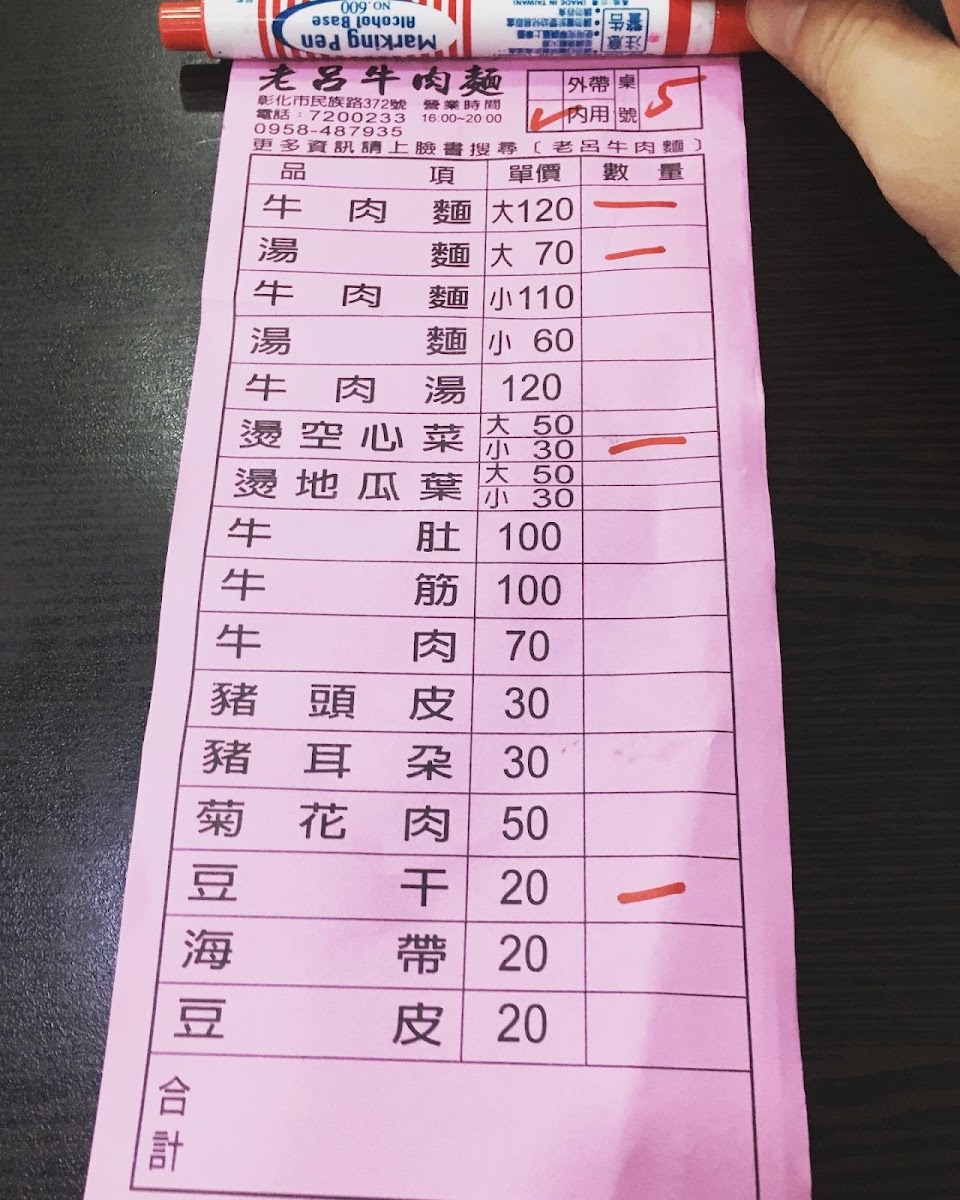 Marking Pen
Alcohol Base
NO.600
注意
警告
(MADE IN TAIWAN)
老呂牛肉麵
彰化市民族路372號 營業時間
電話：7200233 16:00~20:00
0958-487935
外帶 桌 5
✓ 內用 號
更多資訊請上臉書搜尋〔老呂牛肉麵〕
品項 單價 數量
牛肉麵 大120 一
湯麵 大 70 一
牛肉麵 小110
湯麵 小 60
牛肉湯 120
燙空心菜 大 50
小 30 一
燙地瓜葉 大 50
小 30
牛肚 100
牛筋 100
牛肉 70
豬頭皮 30
豬耳朵 30
菊花肉 50
豆干 20 一
海帶 20
豆皮 20
合計